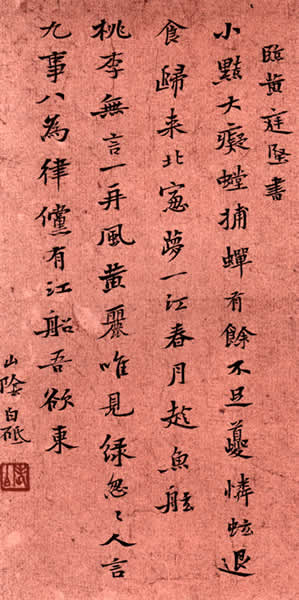 臨黃庭堅書
小黠大癡螳捕蟬有餘不足夔憐蚿退
食歸来北窓夢一江春月趁魚舩
桃李無言一再風黃麗唯見緑怱〻人言
九事八為律儻有江船吾欲東
山陰白砥